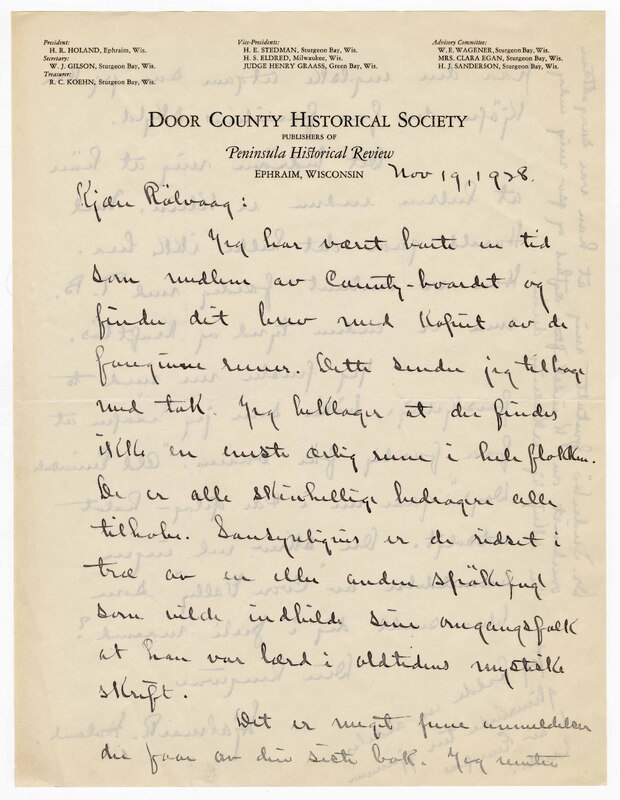 President:
H. R. HOLAND, Ephraim, Wis.
Secretary:
W. J. GILSON, Sturgeon Bay, Wis.
Treasurer:
R. C. KOEHN, Sturgeon Bay, Wis.
Vice-Presidents:
H. E. STEDMAN, Sturgeon Bay, Wis.
H. S. ELDRED, Milwaukee, Wis.
JUDGE HENRY GRAASS, Green Bay, Wis.
Advisory Committee:
W. E. WAGENER, Sturgeon Bay, Wis.
MRS. CLARA EGAN, Sturgeon Bay, Wis.
H. J. SANDERSON, Sturgeon Bay, Wis.
DOOR COUNTY HISTORICAL SOCIETY
PUBLISHERS OF
Peninsula Historical Review
EPHRAIM, WISCONSIN
Nov 19, 1928.
Kjære Rölvaag:
Jeg har været borte en tid
som medlem av County-boardet og
finder dit brev med Kopiet av de
foreginne runer. Dette sender jeg tilbage
med tak. Jeg beklager at der findes
ikke en eneste ærlig rune i hele flokken.
De er alle skinhellige bedragere alle
tilhobe. Sansynligvis er de ridset i
træ av en eller anden spökefugl
som vilde indbilde sine omgangsfolk
at han var lærd i oldtidens mystiske
skrift.
Det er megt fine anmeldelser
du faar av din siste bok. Jeg